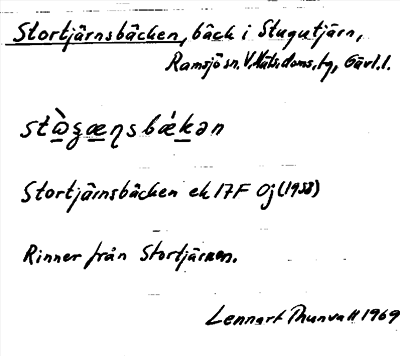 Stortjärnsbäcken, bäck i Stugutjärn,
Ramsjö sn. V. Häls. doms. tg, Gävl. l.
Stortjärnsbäcken ek 17F 0j (1958)
Rinner från Stortjärnen.
Lennart Thunvall 1969